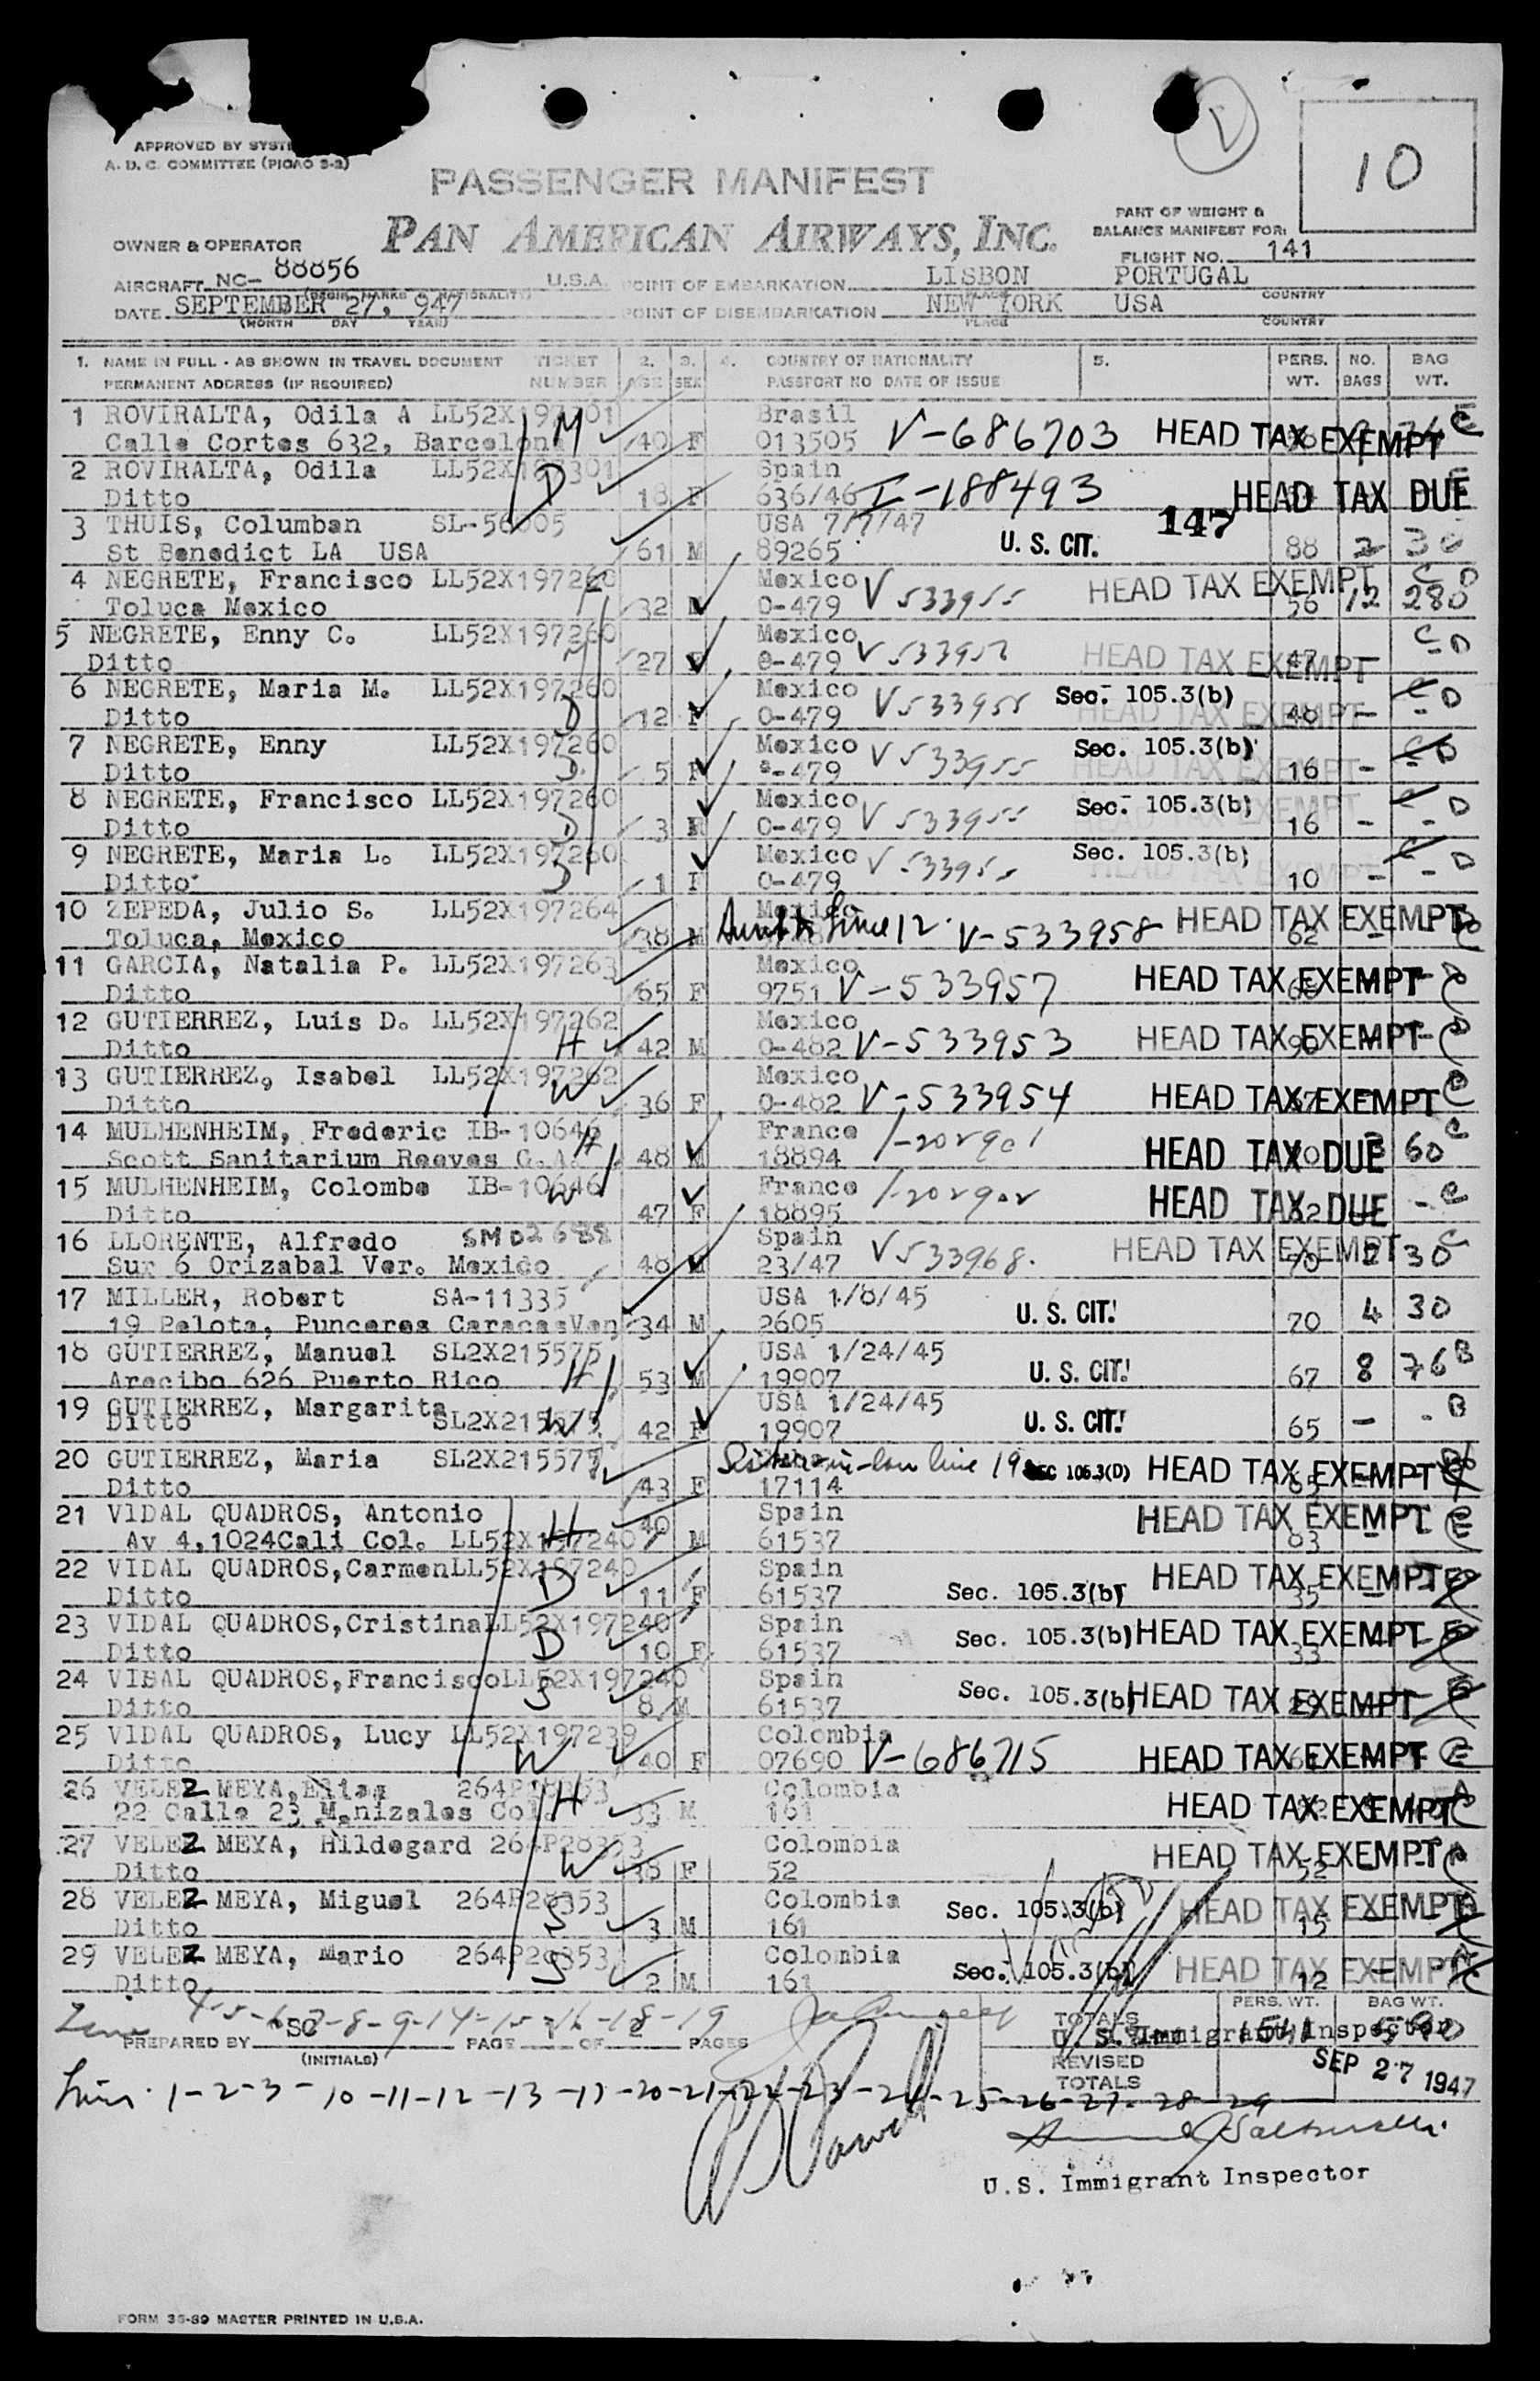 V
10
APPROVED BY SYST
A. D. C. COMMITTEE (PICAO 3-2)
PASSENGER MANIFEST
PAN AMERICAN AIRWAYS, INC.
PART OF WEIGHT &
BALANCE MANIFEST FOR:
OWNER & OPERATOR
FLIGHT NO. 141
AIRCRAFT NC- 88856 U.S.A. POINT OF EMBARKATION LISBON PORTUGAL
DATE SEPTEMBER 27, 947 POINT OF DISEMBARKATION NEW YORK USA
(MONTH DAY YEAR) PLACE COUNTRY
1. NAME IN FULL - AS SHOWN IN TRAVEL DOCUMENT TICKET 2. 3. 4. COUNTRY OF NATIONALITY 5. PERS. NO. BAG
PERMANENT ADDRESS (IF REQUIRED) NUMBER AGE SEX PASSPORT NO DATE OF ISSUE WT. BAGS WT.
1 ROVIRALTA, Odila A Brasil
Calle Cortes 632, Barcelona M 40 F 013505 V-686703 HEAD TAX EXEMPT C
2 ROVIRALTA, Odila Spain
Ditto D 18 F 636/46 I-188493 HEAD TAX DUE
3 THUIS, Columban SL-56005 USA 7/7/47 147
St Benedict LA USA 61 M 89265 U. S. CIT. 88 2 30
4 NEGRETE, Francisco LL52X197260 Mexico
Toluca Mexico 32 M 0-479 V 533955 HEAD TAX EXEMPT 56 12 280
5 NEGRETE, Enny C. LL52X197260 Mexico C D
Ditto 27 F 0-479 HEAD TAX EXEMPT 47 -
6 NEGRETE, Maria M. LL52X197260 Mexico Sec. 105.3(b)
Ditto D 12 F 0-479 V 533955 HEAD TAX EXEMPT 48 -
7 NEGRETE, Enny LL52X197260 Mexico Sec. 105.3(b)
Ditto D 5 F -479 V 533955 HEAD TAX EXEMPT 16 -
8 NEGRETE, Francisco LL52X197260 Mexico Sec. 105.3(b)
Ditto 3 0-479 V 533955 EXEMPT 16 -
9 NEGRETE, Maria L. LL52X197260 Mexico Sec. 105.3(b)
Ditto 1 F 0-479 V-533955 10 -
10 ZEPEDA, Julio S. LL52X197264 Mexico
Toluca, Mexico 38 M line 12 V-533958 HEAD TAX EXEMPT 62 -
11 GARCIA, Natalia P. LL52X197263 Mexico
Ditto 65 F 9751 V-533957 HEAD TAX EXEMPT
12 GUTIERREZ, Luis D. LL52X197262 Mexico
Ditto H 42 M 0-482 V-533953 HEAD TAX EXEMPT 90
13 GUTIERREZ, Isabel LL52X197262 Mexico
Ditto W 36 F 0-482 V-533954 HEAD TAX EXEMPT
14 MULHENHEIM, Frederic IB-10646 France
Scott Sanitarium Reeves G.A. H 48 M 18894 I-202901 HEAD TAX DUE 60 C
15 MULHENHEIM, Colombe IB-10646 France
Ditto W 47 F 18895 I-202902 HEAD TAX DUE - C
16 LLORENTE, Alfredo SM02688 Spain
Sur 6 Orizabal Ver. Mexico 48 M 23/47 V 533968. HEAD TAX EXEMPT 70 2 30 C
17 MILLER, Robert SA-11335 USA 1/8/45
19 Pelota, Punceres CaracasVen 34 M 2605 U. S. CIT. 70 4 30
18 GUTIERREZ, Manuel SL2X215575 USA 1/24/45
Arecibo 626 Puerto Rico H 53 M 19907 U. S. CIT. 67 8 76 B
19 GUTIERREZ, Margarita USA 1/24/45
Ditto SL2X215575 W 42 F 19907 U. S. CIT. 65 - - B
20 GUTIERREZ, Maria SL2X215575 Sister-in-law line 19 SEC 105.3(D) HEAD TAX EXEMPT
Ditto 43 F 17114
21 VIDAL QUADROS, Antonio Spain HEAD TAX EXEMPT
Av 4,1024Cali Col. LL52X197240 H 40 M 61537 83 -
22 VIDAL QUADROS,CarmenLL52X197240 Spain HEAD TAX EXEMPT
Ditto D 11 F 61537 Sec. 105.3(b) 35 -
23 VIDAL QUADROS,CristinaLL52X197240 Spain
Ditto D 10 F 61537 Sec. 105.3(b) HEAD TAX EXEMPT 33
24 VIDAL QUADROS,FranciscoLL52X197240 Spain
Ditto S 8 M 61537 Sec. 105.3(b) HEAD TAX EXEMPT 29
25 VIDAL QUADROS, Lucy LL52X197239 Colombia
Ditto W 40 F 07690 V-686715 HEAD TAX EXEMPT
26 VELEZ MEYA,Elias 264P28353 Colombia
22 Calle 23 Manizales Col. H 33 M 161 HEAD TAX EXEMPT
27 VELEZ MEYA, Hildegard 264P28353 Colombia HEAD TAX EXEMPT
Ditto W 38 F 52 52
28 VELEZ MEYA, Miguel 264P28353 Colombia
Ditto S 3 M 161 Sec. 105.3(b) HEAD TAX EXEMPT 15
29 VELEZ MEYA, Mario 264P28353 Colombia
Ditto S 2 M 161 Sec. 105.3(b) HEAD TAX EXEMPT 12 -
Line 4-5-6-7-8-9-14-15-16-18-19
PREPARED BY SC PAGE 1 OF 2 PAGES
(INITIALS)
TOTALS PERS. WT. BAG WT.
U. S. Immigrant Inspector
REVISED
TOTALS
SEP 27 1947
Lines 1-2-3-10-11-12-13-17-20-21-22-23-24-25-26-27-28-29
U.S. Immigrant Inspector
FORM 36-89 MASTER PRINTED IN U.S.A.